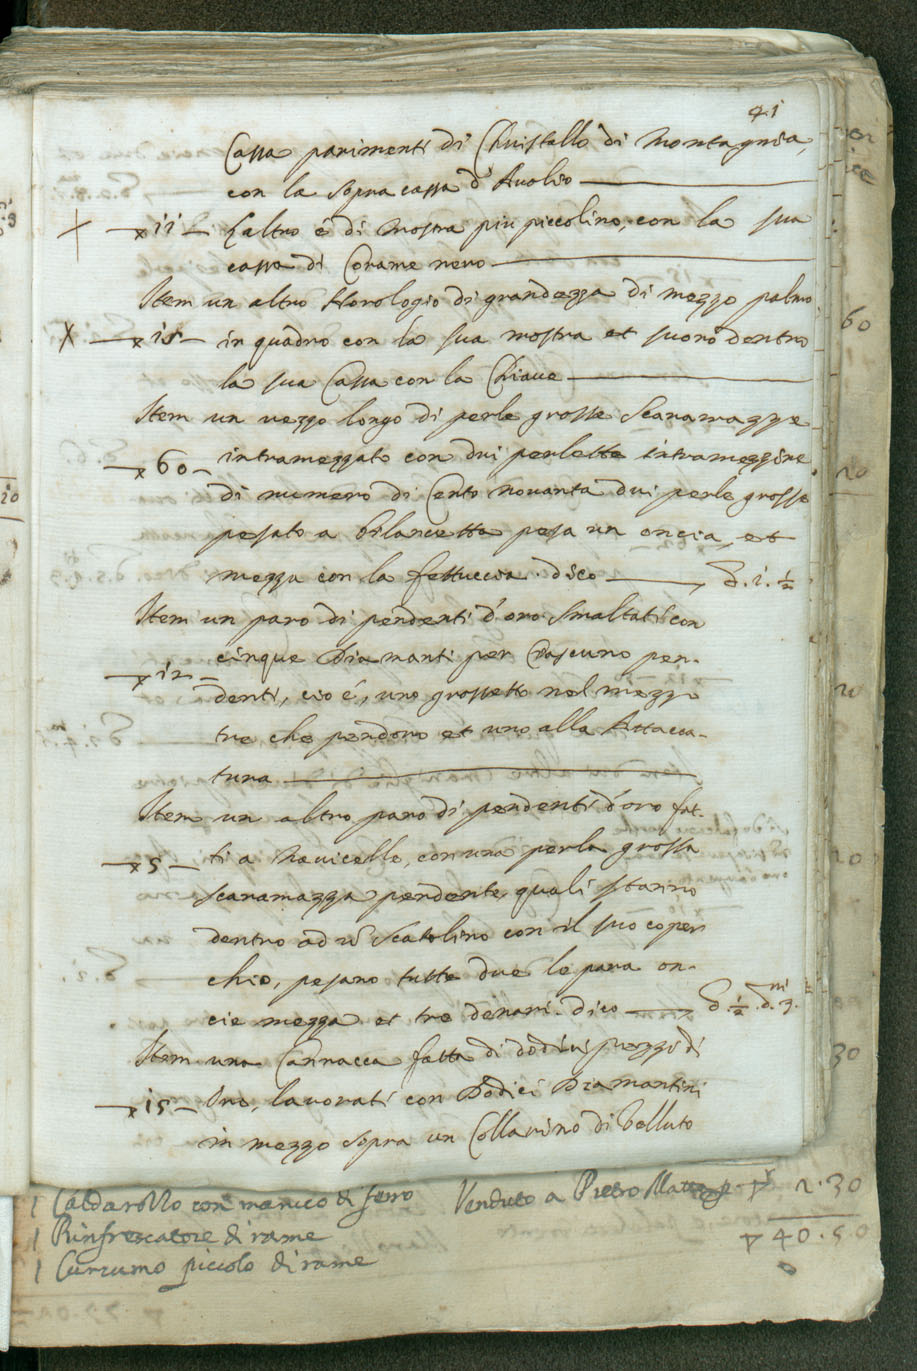 41
Cassa parimenti di Christallo di Montagnia,
con la sopra cassa d'Auolio
ii L'altro è di Mostra piu piccolino, con la sua
cassa di Corame nero
Item un altro Horologio di grandezza di mezzo palmo
15 in quadro con la sua mostra et suono dentro
la sua Cassa con la Chiaue
Item un uezzo longo di perle grosse Scaramazze
60 intramezzato con dui perlette intramezzine
di numero di Cento nouanta dui perle grosse
pesato a bilancetta pesa un oncia, et
mezza con la fettuccia. dico
Item un paro di pendenti d'oro smaltati con
12 cinque Diamanti per Ciascuno pen-
denti, cio é, uno grossetto nel mezzo
tre che pendono et uno alla Attacca-
tura
Item un altro paro di pendenti d'oro fat-
5 ti a Nauicelle, con una perla grossa
scaramazza pendente, quali stanno
dentro ad un Scatolino con il suo coper
chio, pesano tutte due le para on-
cie mezza et tre denari. dico
Item una Cannacca fatta di dodici pezzi di
15 Oro, lauorati con Dodici Diamantini
in mezzo sopra un Collarino di Velluto
1 Caldarozzo con manico di ferro Venduto a Pietro 2.30
1 Rinfrescatore di rame 40.50
1 piccolo di rame